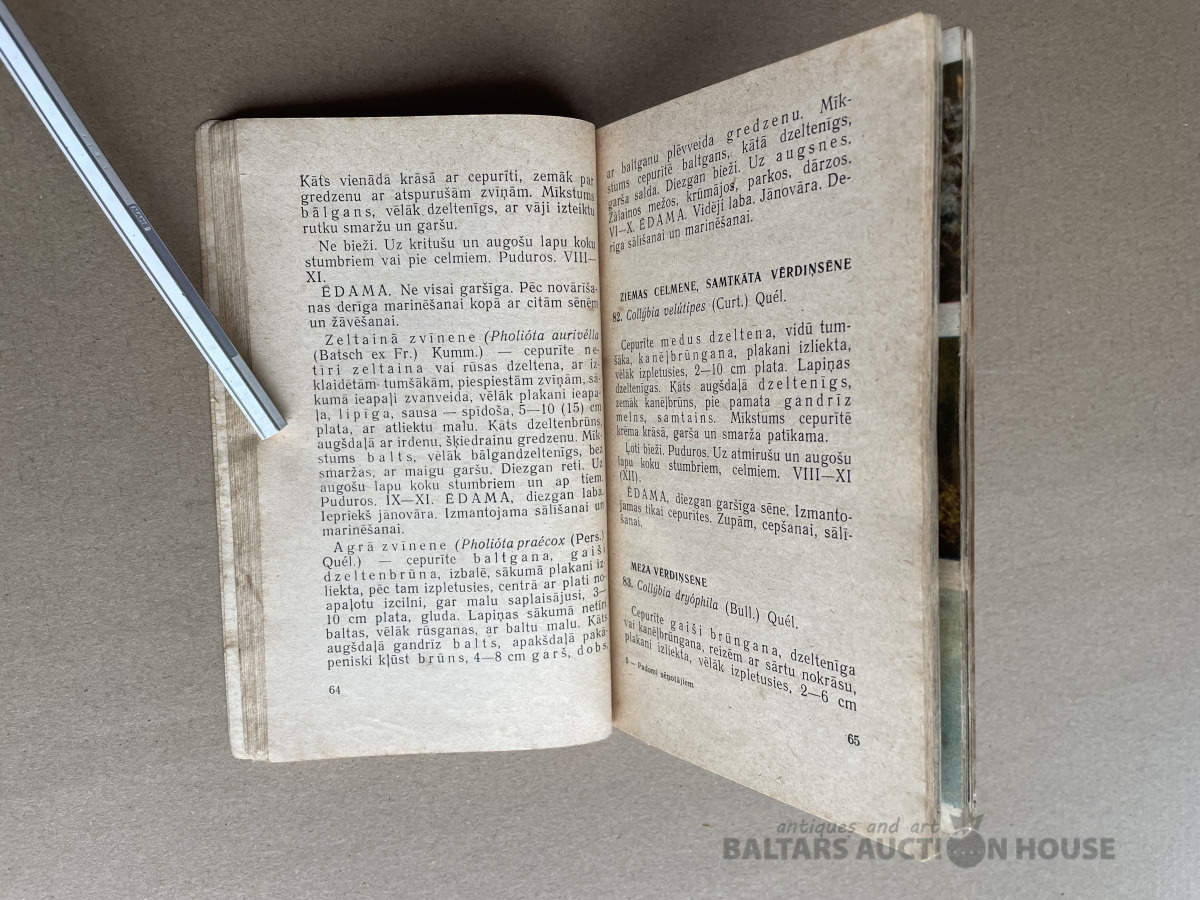 Kāts vienādā krāsā ar cepurīti, zemāk par
gredzenu ar atspurušām zvīņām. Mīkstums
bālgans, vēlāk dzeltenīgs, ar vāji izteiktu
rutku smaržu un garšu.
Ne bieži. Uz kritušu un augošu lapu koku
stumbriem vai pie celmiem. Puduros. VIII—
XI.
ĒDAMA. Ne visai garšīga. Pēc novārīša-
nas derīga marinēšanai kopā ar citām sēnēm
un žāvēšanai.
Zeltainā zvīnene (Pholióta aurivélla
(Batsch ex Fr.) Kumm.) — cepurīte ne-
tīri zeltaina vai rūsas dzeltena, ar iz-
klaidētām tumšākām, piespiestām zvīņām, sā-
kumā ieapaļi zvanveida, vēlāk plakani ieapa-
ļa, lipīga, sausa — spīdoša, 5—10 (15) cm
plata, ar atliektu malu. Kāts dzeltenbrūns,
augšdaļā ar irdenu, šķiedrainu gredzenu. Mīk-
stums balts, vēlāk bālgandzeltenīgs, bez
smaržas, ar maigu garšu. Diezgan reti. Uz
augošu lapu koku stumbriem un ap tiem.
Puduros. IX—XI. ĒDAMA, diezgan laba.
Iepriekš jānovāra. Izmantojama sālīšanai un
marinēšanai.
Agrā zvīnene (Pholióta praécox (Pers.)
Quél.) — cepurīte baltgana, gaiši
dzeltenbrūna, izbalē, sākumā plakani iz-
liekta, pēc tam izpletusies, centrā ar plati no-
apaļotu izcilni, gar malu saplaisājusi, 3—
10 cm plata, gluda. Lapiņas sākumā netīri
baltas, vēlāk rūsganas, ar baltu malu. Kāts
augšdaļā gandrīz balts, apakšdaļā pakā-
peniski kļūst brūns, 4—8 cm garš, dobs,
64
ar baltganu plēvveida gredzenu. Mīk-
stums cepurītē baltgans, kātā dzeltenīgs,
garša salda. Diezgan bieži. Uz augsnes.
Zālainos mežos, krūmājos, parkos, dārzos.
VI—X. ĒDAMA. Vidēji laba. Jānovāra. De-
rīga sālīšanai un marinēšanai.
ZIEMAS CELMENE, SAMTKĀTA VĒRDIŅSĒNE
82. Collýbia velútipes (Curt.) Quél.
Cepurīte medus dzeltena, vidū tum-
šāka, kanēļbrūngana, plakani izliekta,
vēlāk izpletusies, 2—10 cm plata. Lapiņas
dzeltenīgas. Kāts augšdaļā dzeltenīgs,
zemāk kanēļbrūns, pie pamata gandrīz
melns, samtains. Mīkstums cepurītē
krēma krāsā, garša un smarža patīkama.
Ļoti bieži. Puduros. Uz atmirušu un augošu
lapu koku stumbriem, celmiem. VIII—XI
(XII).
ĒDAMA, diezgan garšīga sēne. Izmanto-
jamas tikai cepurītes. Zupām, cepšanai, sālī-
šanai.
MEŽA VĒRDIŅSĒNE
83. Collýbia dryóphila (Bull.) Quél.
Cepurīte gaiši brūngana, dzeltenīga
vai kanēļbrūngana, reizēm ar sārtu nokrāsu,
plakani izliekta, vēlāk izpletusies, 2—6 cm
5 — Padomi sēņotājiem
65
antiques and art
BALTARS AUCTION HOUSE